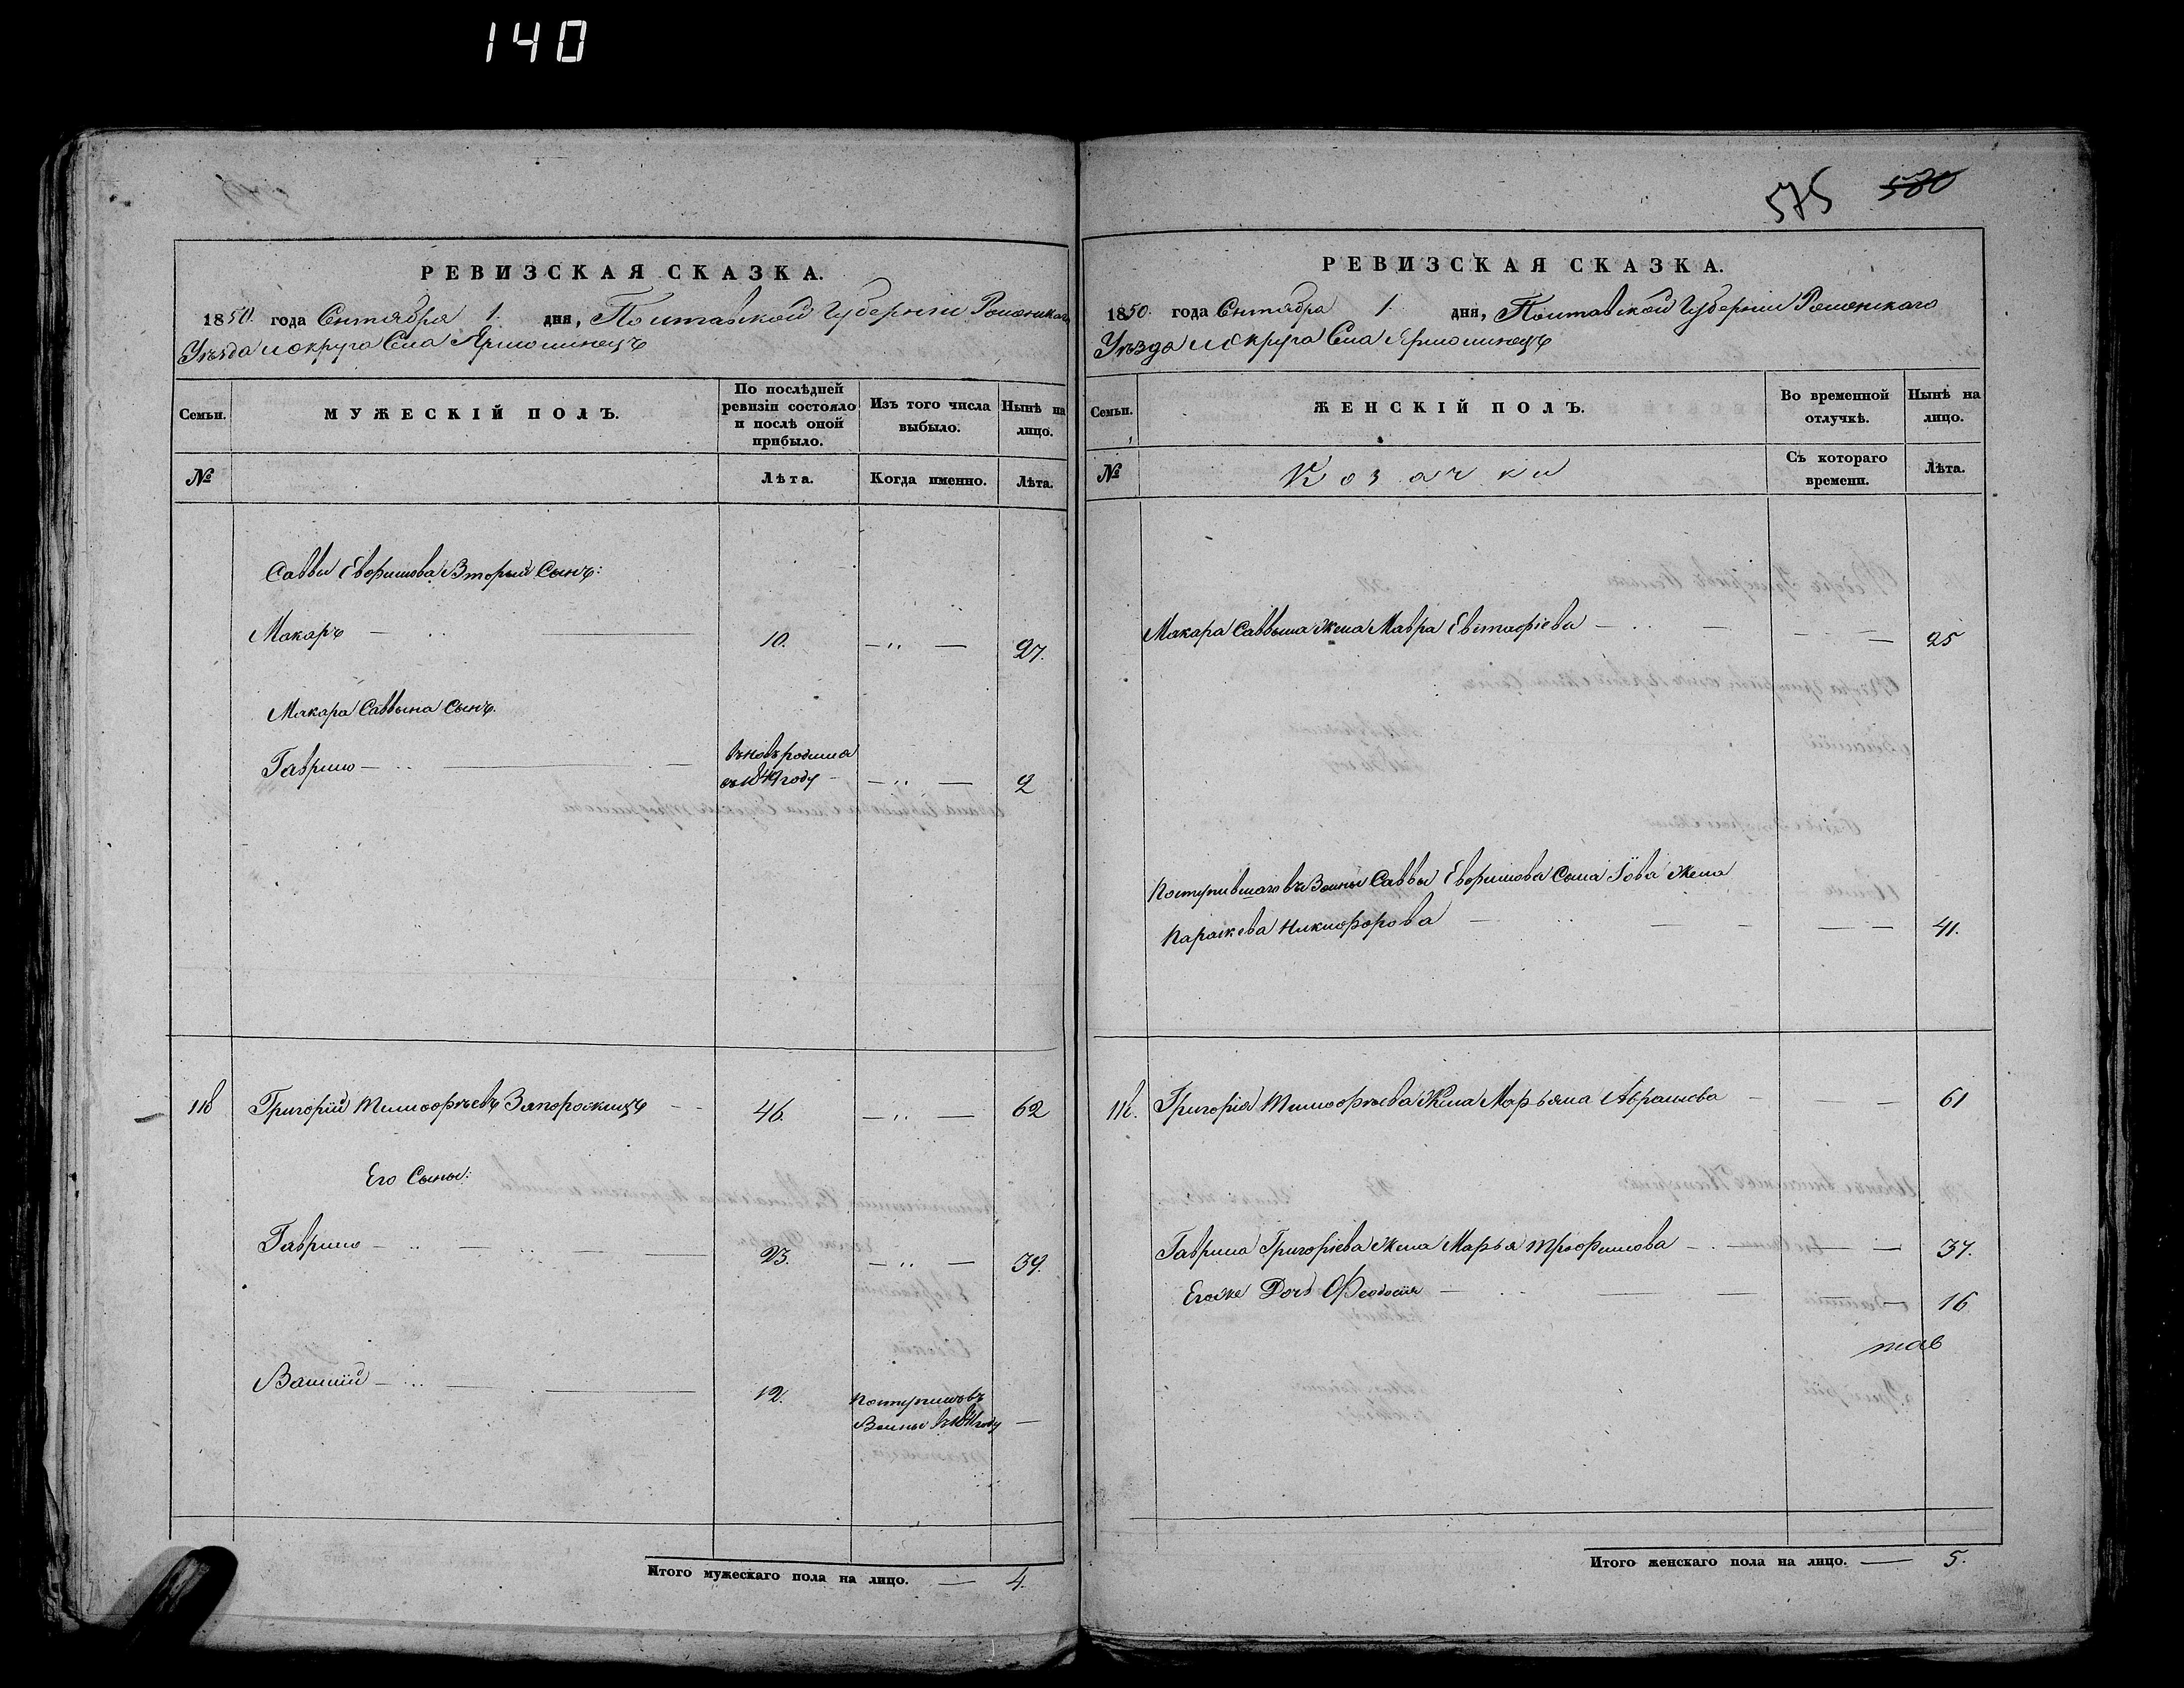 140
РЕВИЗСКАЯ СКАЗКА.
1850. года Сентября 1. дня, Полтавской Губернiи Роменскаго
Уѣзда и округа Села Ярмолинецъ
Семьи.
МУЖЕСКІЙ ПОЛЪ.
По послѣдней ревизіи состояло и послѣ оной прибыло.
Изъ того числа выбыло.
Нынѣ на лицо.
№
Лѣта.
Когда именно.
Лѣта.
Саввы Евфимова Вторый Сынъ:
Макаръ 10. 27.
Макара Саввина Сынъ.
Гаврило вновь родился
въ 1849 году 2
118 Григорій Тимофѣевъ Запорожецъ 46. 62
Его Сыны:
Гаврило 23. 39.
Василій 12. Поступилъ въ
Воины в 1841 году
Итого мужескаго пола на лицо. 4.
575 580
РЕВИЗСКАЯ СКАЗКА.
1850. года Сентября 1. дня, Полтавской Губернiи Роменскаго
Уѣзда и Округа Села Ярмолинецъ
Семьи.
ЖЕНСКІЙ ПОЛЪ.
Во временной отлучкѣ.
Нынѣ на лицо.
№
Козачки
Съ котораго времени.
Лѣта.
Макара Саввина Жена Мавра Евстафіева 25
Поступившаго въ Воины Саввы Евфимова Сына Іова Жена
Параскева Никифорова 41.
118. Григорія Тимофѣева Жена Марьяна Абрамова 61
Гаврила Григоріева Жена Марья Трофимова 37.
Его же Дочь Феодосія 16
Итого женскаго пола на лицо. 5.